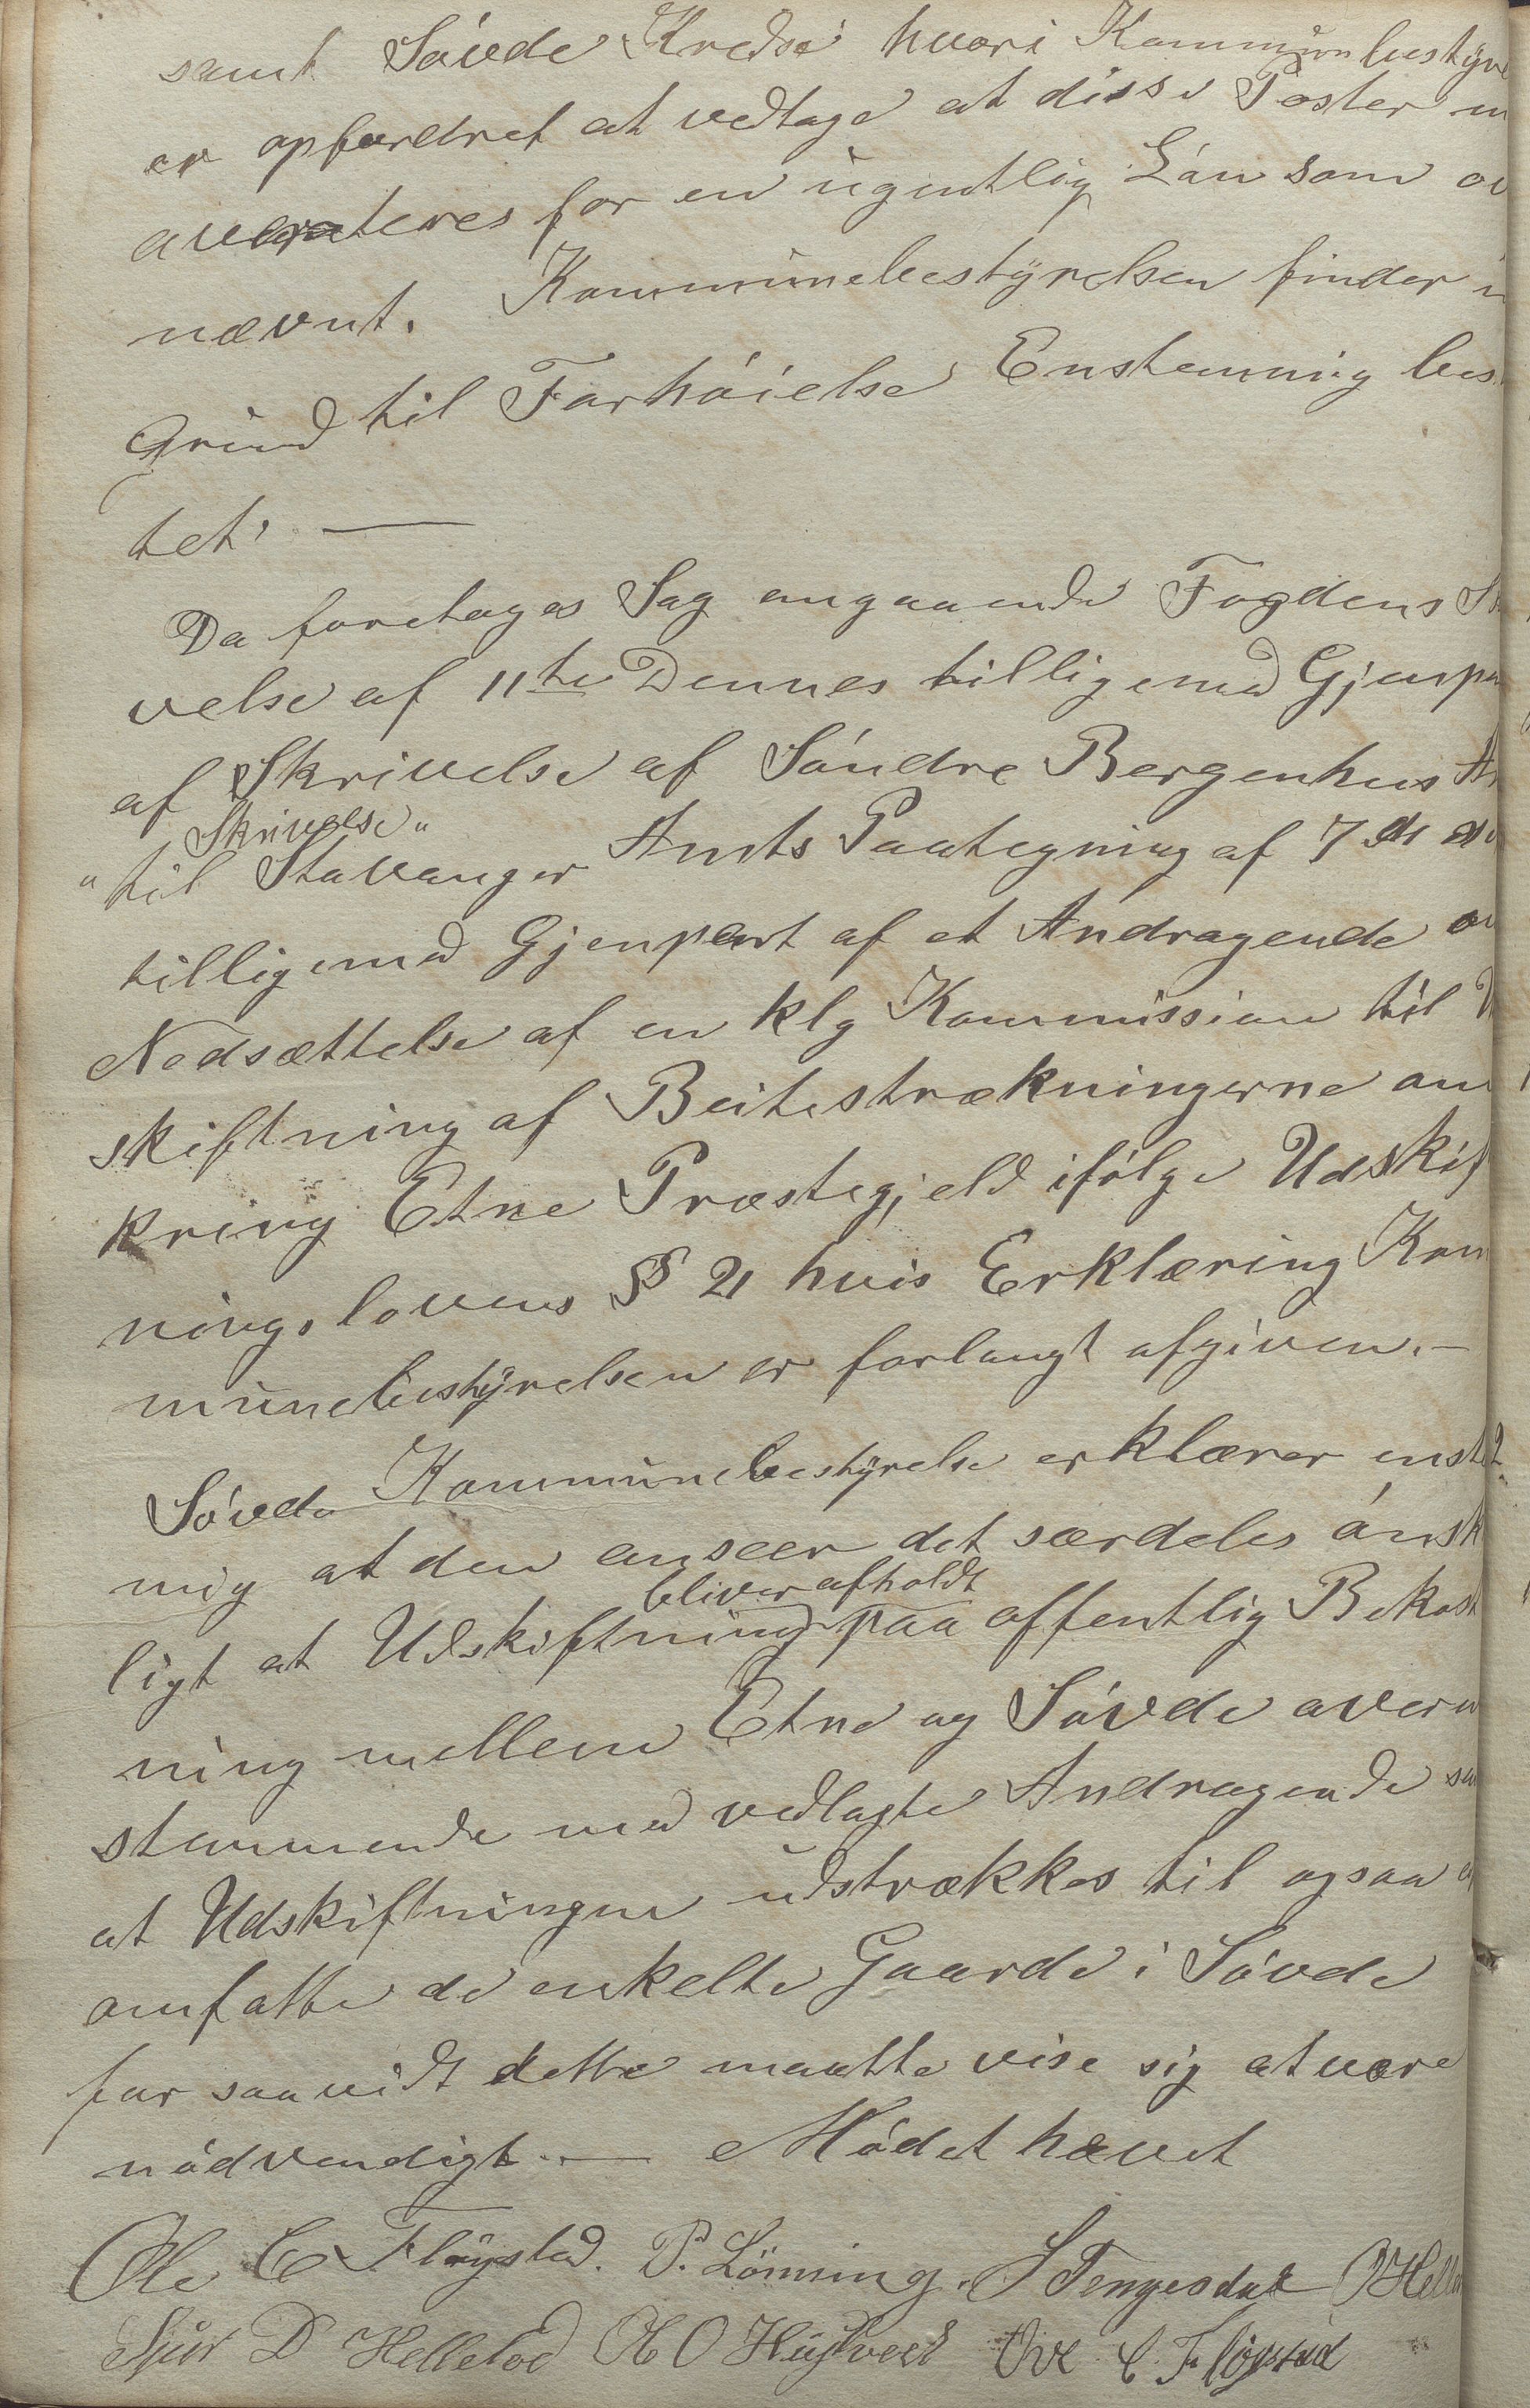 samt Søvde Kredse hvori Kommunbestyre
er opfordret at vedtage at disse Poster
averteres for en ugentlig Løn som
nævnt. Kommunebestyrelsen finder
Grund til Forhøielse Enstemmig bes
tet. —
Da foretages Sag angaaende Fogdens
velse af 11te Dennes tilligemed Gjenpa
af Skrivelse af Søndre Bergenhus
Skrivelse"
"til Stavanger Amts Paategning af 7de
tilligemed Gjenpart af et Andragende
Nedsættelse af en klg Kommission til
skiftning af Beitestrækningerne om
kring Etne Præstegjeld ifølge Udskif
ningslovens § 21 hvis Erklæring Kom
munebestyrelsen er forlangt afgiven. —
Søvde Kommunebestyrelse erklærer enst
mig at den anseer det særdeles ønsk
bliver afholdt
ligt at Udskiftning paa offentlig Bekost
ning mellem Etne og Søvde overe
stemmende med vedlagte Andragende
at Udskiftningen udstrækkes til ogsaa
omfatte de enkelte Gaarde i Søvde
for saavidt dette maatte vise sig at være
nødvendigt. — Mødet hævet
Ole C Fløystad. P. Lönning. S Tengesdal
Sjur D Helleland O Ove C. Fløgstad